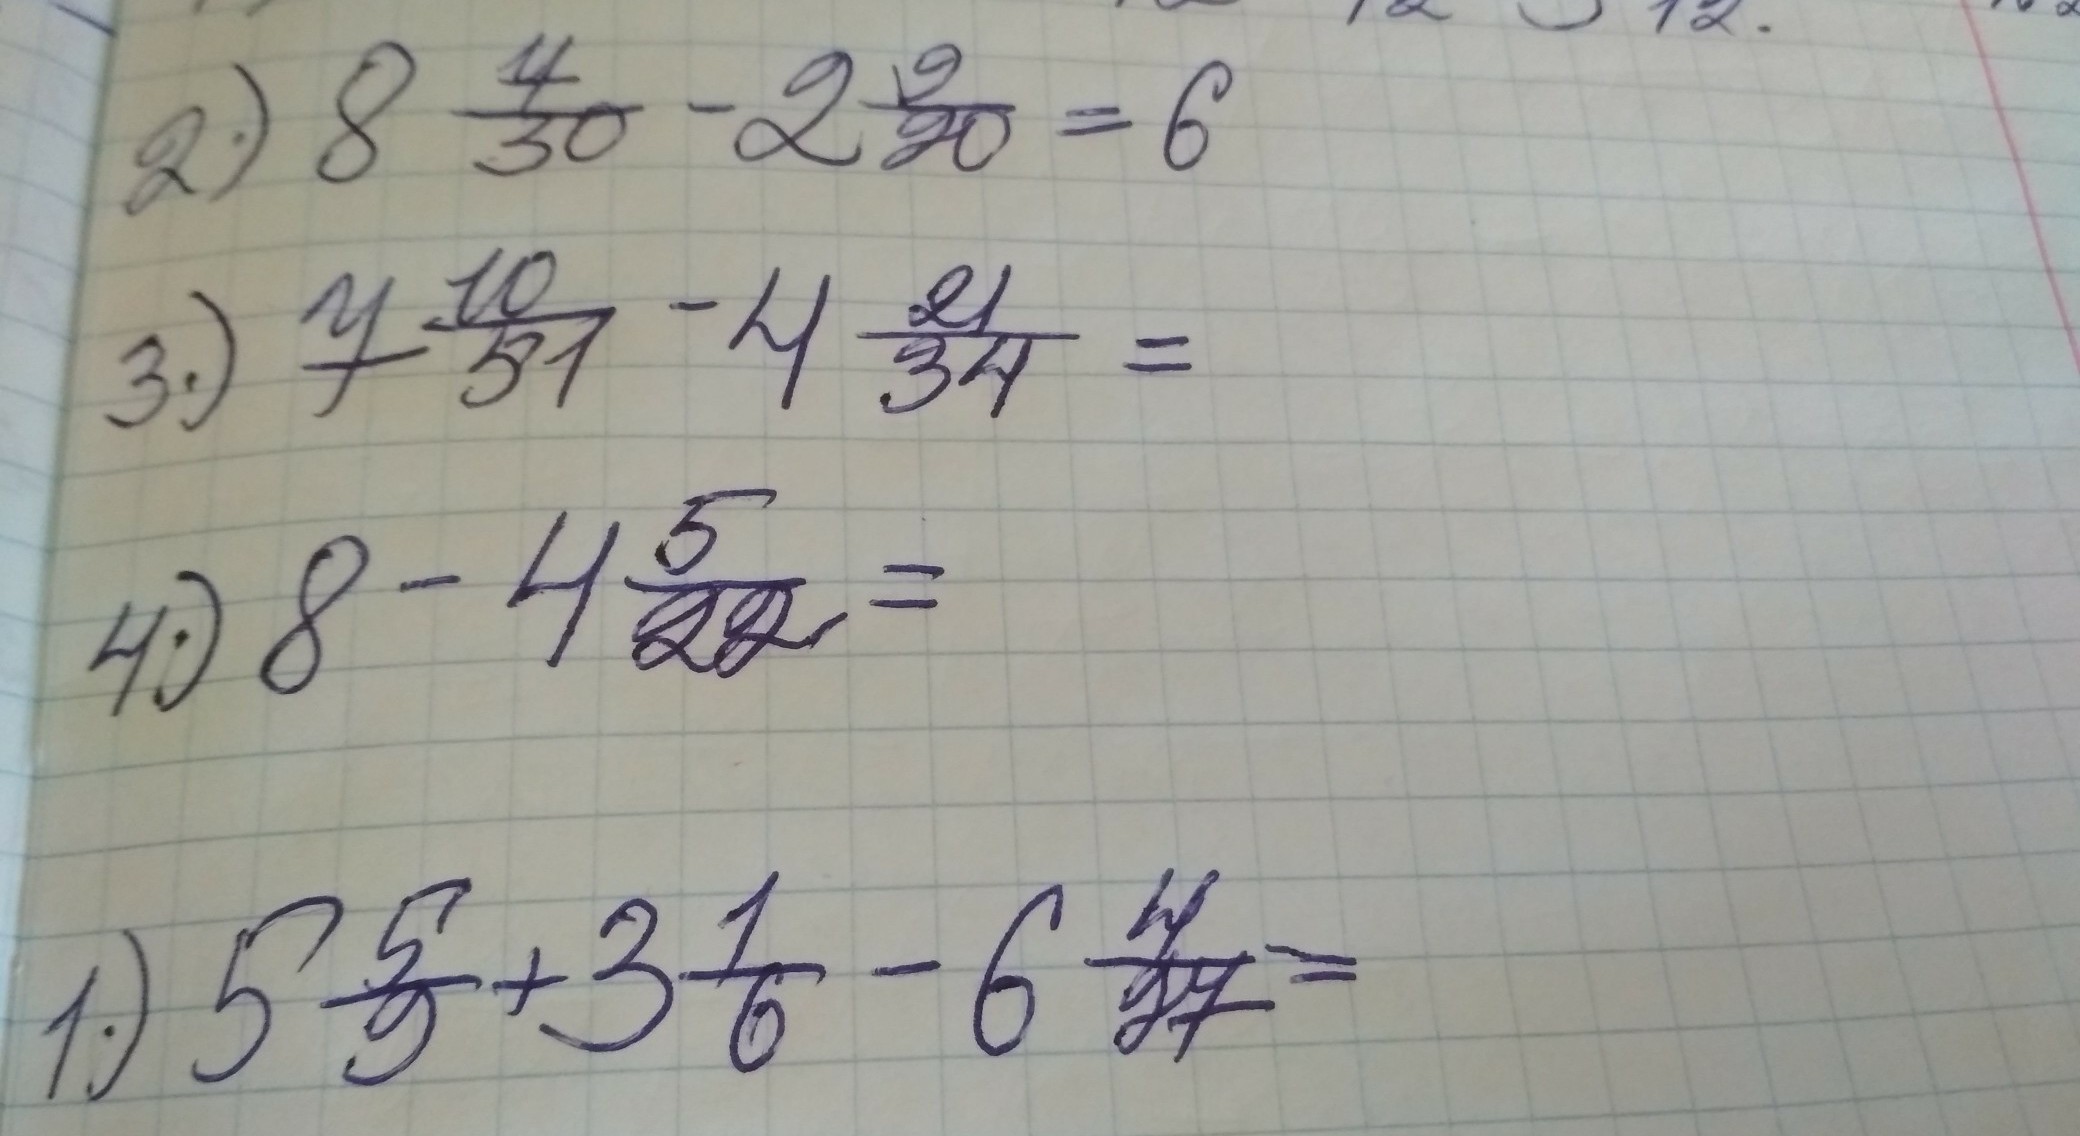 2.) 8 7/30 - 2 9/20 = 6
3.) 7 10/51 - 4 21/34 =
4.) 8 - 4 5/22 =
1.) 5 5/9 + 3 1/6 - 6 4/27 =